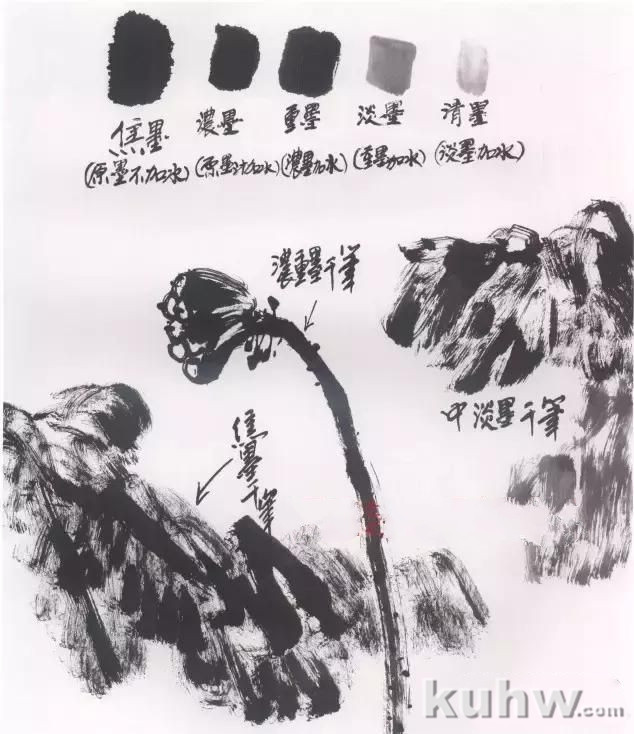 焦墨 濃墨 重墨 淡墨 清墨
(原墨不加水) (原墨汁加水) (濃墨加水) (重墨加水) (淡墨加水)
濃重墨干筆
中淡墨干筆
焦墨干筆
kuhw.com